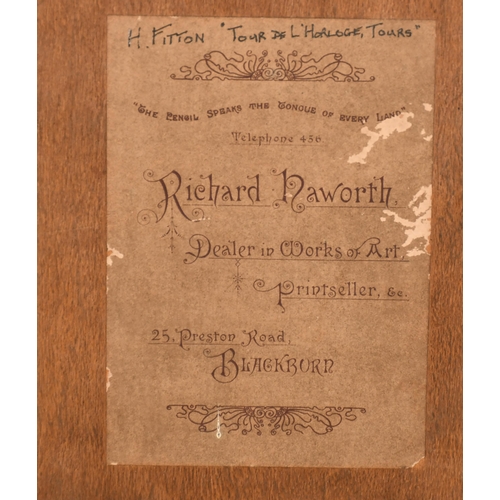 H. FITTON "TOUR DE L'HORLOGE, TOURS"
"The Pencil Speaks the Tongue of every Land"
Telephone 456
Richard Haworth,
Dealer in Works of Art,
Printseller, &c.
25, Preston Road,
BLACKBURN